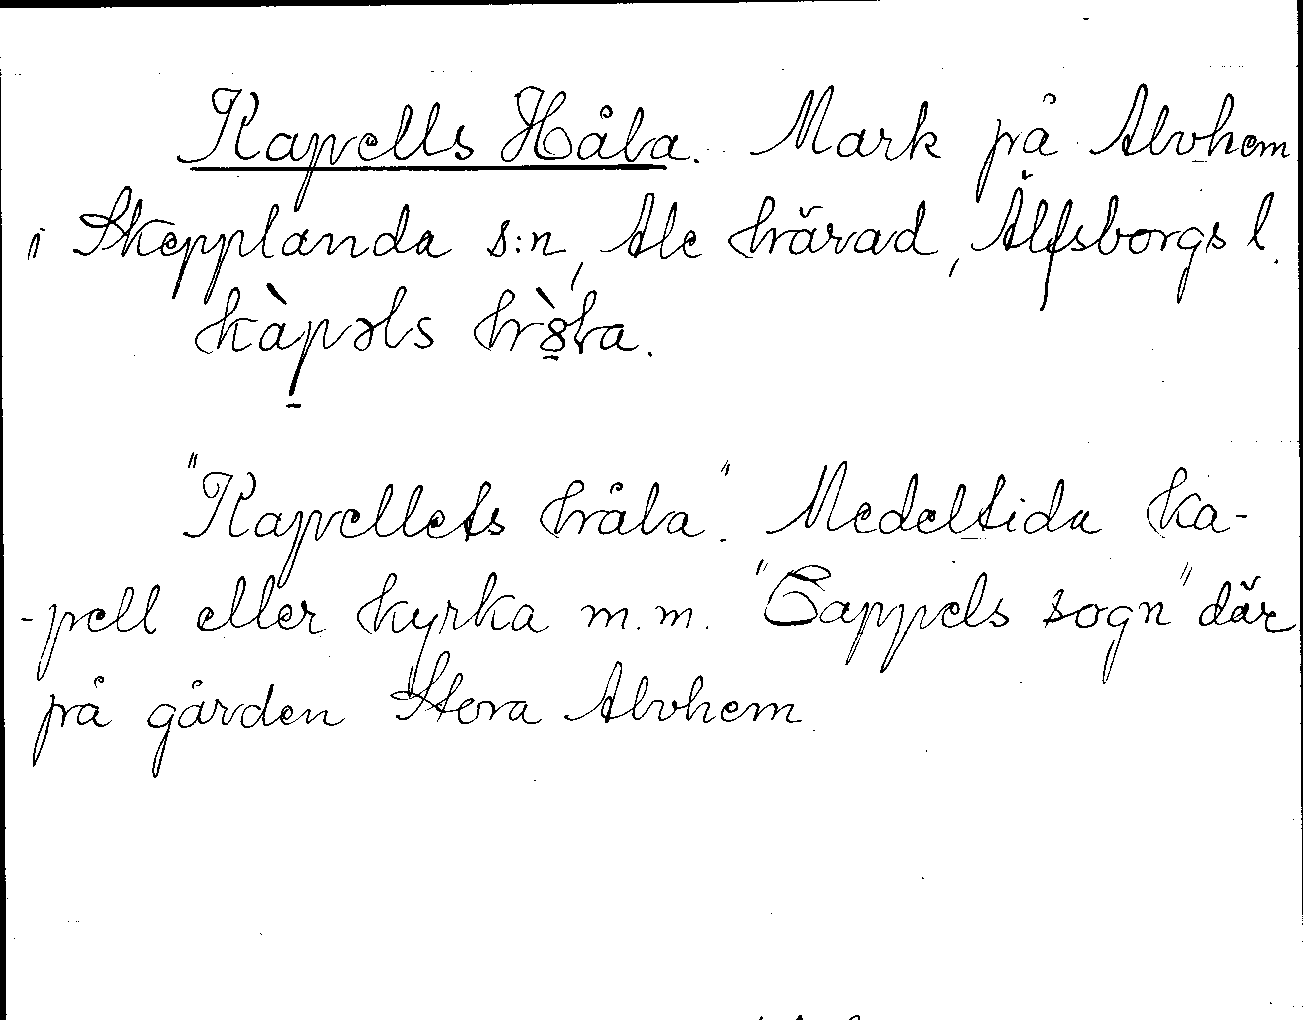 Kapells Håla. Mark på Alvhem
i Skepplanda s:n, Ale härad, Älfsborgs l.
kàpəls hò̤la.
"Kapellets håla". Medeltida ka-
-pell eller kyrka m.m. "Cappels sogn" där
på gården Stora Alvhem